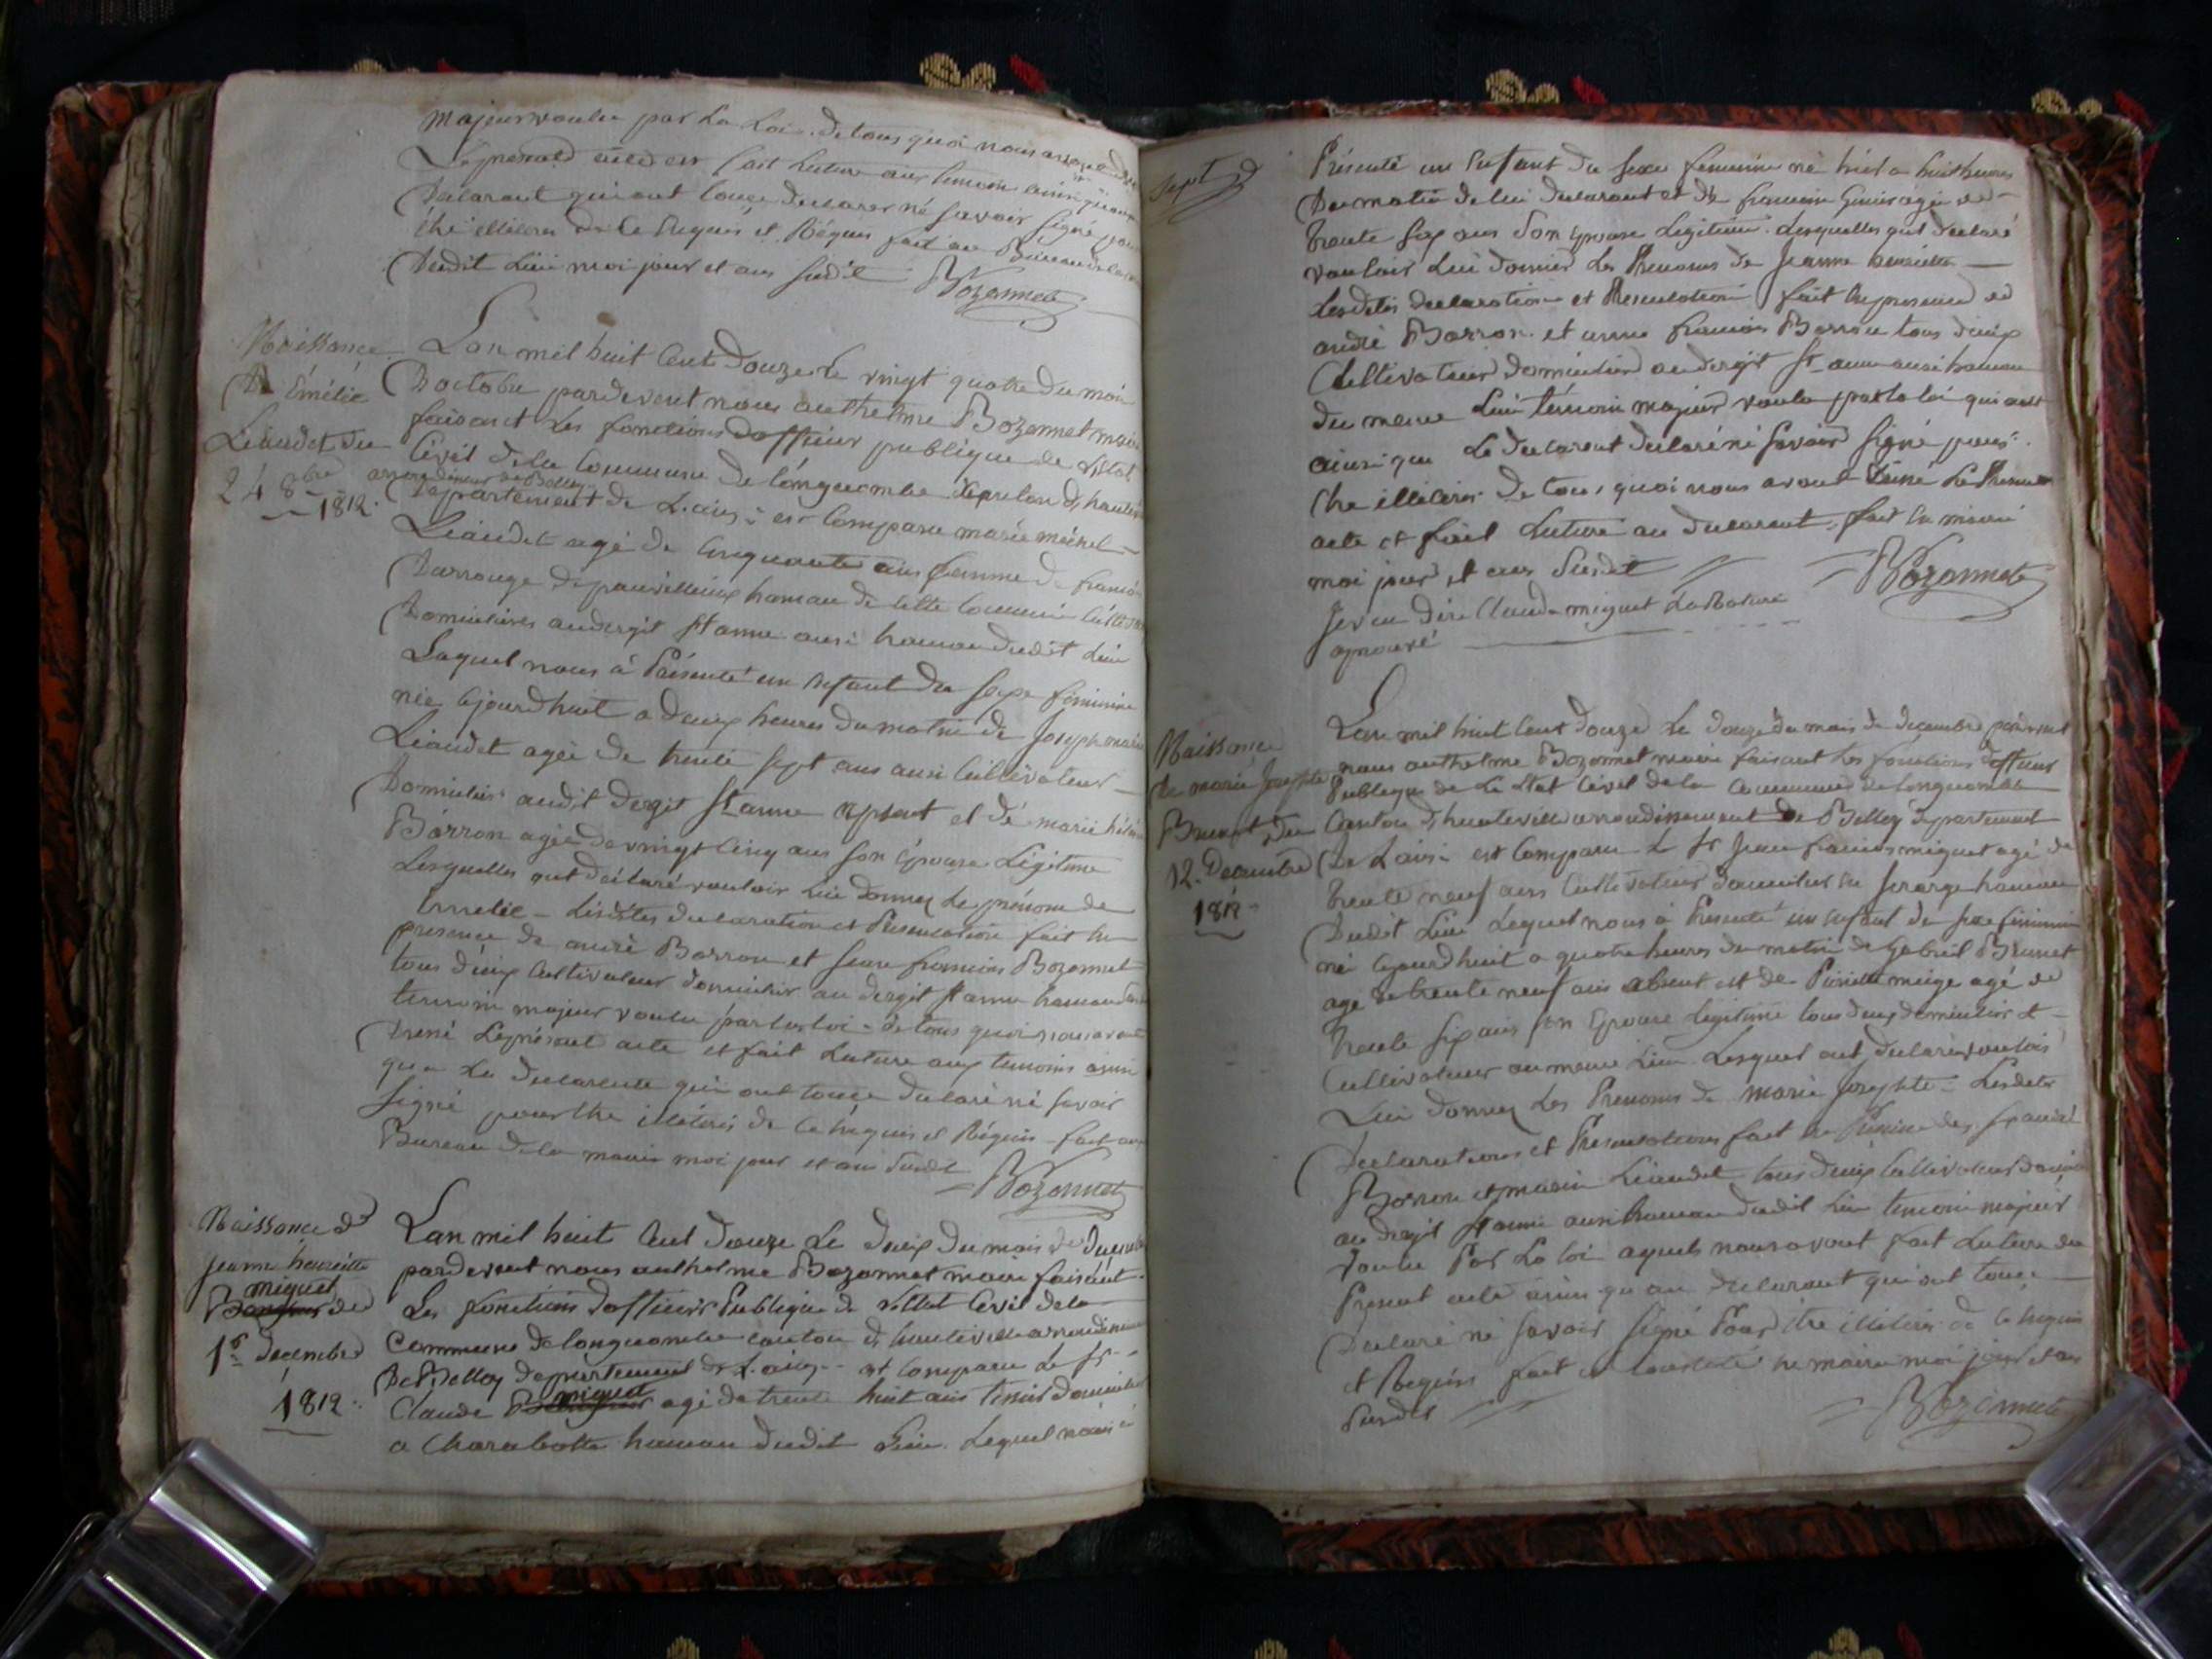 majeur voulu par La Loi. De tous quoi nous avont
Le présent acte et fait Luture aux temoin ainsi qu'au
Declarant qui ont touce declarer né savoir signé pour
être illiteres de Ce Requis et Réquis fait au Bureau de la
Dudit Lieu moi jour et ans sudit Bozonnet
Naissance
De Émélie
Liaudet du
24 8bre
1812.
Lan mil huit Cent Douze Le vingt quatre du mois
Doctobre pardevent nous anthelme Bozonnet maire
faisant Les fonctions dofficier publique de Lettat
Civil dela Commune de Longuecombe Canton d'hauteville
arrondiment de Belley
Departement de L'ain : est Comparu marie michel
Liaudet agé de Cinquante ans femme de francois
Darrouge de hamau de Cette Commune
Domiciliées audergit St anne ausi hamau dudit Lieu
Laquel nous à Présenté un enfant du sexe féminine
née ajourdhuit a deux heures du matin de Joseph marie
Liaudet agée de trente sept ans ausi Cultivateur
Domicilié audit dergit St anne apsent et de marie
Barron agée de vingt Cinq ans son Epouse Légitime
Lesquelles ont déclaré vouloir Lui Donnez Le prénom de
Emelie - Lesdites declaration et Presentation fait en
presence de andré Barron et Jean francois Bozonnet
tous deux Cultivateur domicilier au dergit St anne hamau
temoin majeur voulu par La loi - de tous quoi nous avont
Dréné Le présent acte et fait Luture aux temoins ainsi
qu'a La declarente qui ont touce declaré né savoir
signé pour être illitéres de Ce requis et Réquis - fait au
Bureau de La mairie moi jour et an sudit
Bozonnet
Naissance de
jeanne henriette
miquet
de
1er decembre
1812.
Lan mil huit Cent Douze Le deux du mois de Decembre
pardevent nous anthelme Bozonnet maire faisant
Les fonctions dofficier Publique de Lettat Civil dela
Commune de longuecombe canton d'hauteville arrondiment
De Belley departement de L'ain - est Comparu Le Sr
miquet
Claude agé de trente huit ans domicilié
a Charabotte hamau dudit Lieu. Lequel nous à
sept
Présenté un Enfant du sexe feminin né hiet a huit heures
Du matin de lui declarant et de francoise agée de
trente six ans son Epouse Legitime. Lesquelles ont declaré
vouloir Lui donner Les Prenoms de Jeanne henriette
Lesdites declaration et Presentation fait En presence de
andré Barron et anne francois Barron tous deux
Cultivateur domicilier audergit St anne ausi hamau
du meme Lieu témoin majeur voulu par la loi qui ont
ainsi que Le declarent declaré né savoir signé pour
être illiteres De tous quoi nous avont Dréné Le Present
acte et fait Luture au declarant. fait En mairie
moi jour et ans Susdit Bozonnet
Je veu dire Claude miquet La Rature
aprouvé
Naissance
de marie Josephte
Brunet du
12. Decembre
1812
Lan mil huit Cent douze Le douze du mois de decembre pardevent
nous anthelme Bozonnet maire faisant les fonctions dofficier
Publique de Lettat Civil dela Commune de Longuecombe
Canton d'hauteville arrondissement de Belley departement
De Lain : est Comparu Le Sr Jean francois miquet agé de
trente neuf ans Cultivateur domicilier En hamau
Dudit Lieu Lequel nous à Presenté un enfant de sexe féminin
né ajourdhuit a quatre heures du matin de Gabriel Brunet
agé de trente neuf ans absent et de Pierrette agé de
trente six ans son Epouse Legitime tous deux domicilier et
Cultivateur au meme Lieu. Lesquel ont declaré vouloir
Lui donnez Les Prenoms de marie Josephte - Lesdites
Declarations et Presentations fait En Présence des
Barron et Liaudet tous deux Cultivateur
au dergit St anne ausi hamau dudit Lieu temoin majeur
voulu Par La loi aquels nous avont fait Luture du
Present acte ainsi qu'au declarant qui ont touce
Declaré né savoir signé Pour être illiteres de Ce requis
et Requis fait En mairie moi jour et an
Susdit Bozonnet